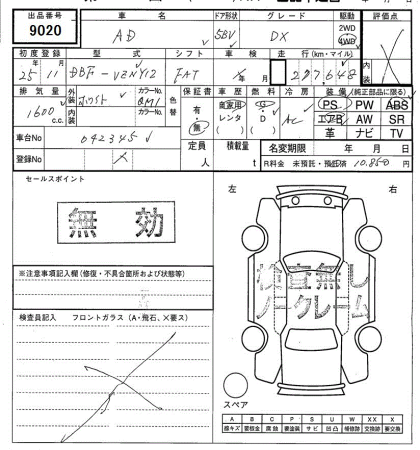 出品番号 車名 ドア形状 グレード 駆動 評価点
9020 AD 5BV DX 2WD 4WD
内装
初度登録 型式 シフト 車検 走行(km・マイル)
25年11月 DBF-VZNY12 FAT 年 月 207648
排気量 外装 カラーNo. 色替 保証書 車歴 燃料 冷房 装備(純正部品に限る)
1600c.c. ホワイト QM1 有・無 自家用 レンタ G D AC PS PW ABS
内装 カラーNo. エアB AW SR
革 ナビ TV
車台No 042345
定員 人 積載量 t 名変期限 年 月 日
登録No R料金 未預託・預託済 10,850円
セールスポイント
無効
左 右
検査無し
ノークレーム
※注意事項記入欄(修復・不具合箇所および状態等)
検査員記入 フロントガラス(A・飛石、×要ス)
スペア
A B C P S U W X XX
線キズ 要板金 腐蝕 要塗装 サビ 凹凸 補修跡 交換跡 要交換